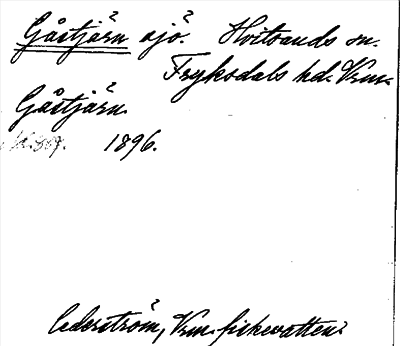 Gåstjärn sjö. Hvitsands sn.
Fryksdals hd. Vrm.
Gåstjärn
1896.
Cederström, Vrm. fiskevatten.